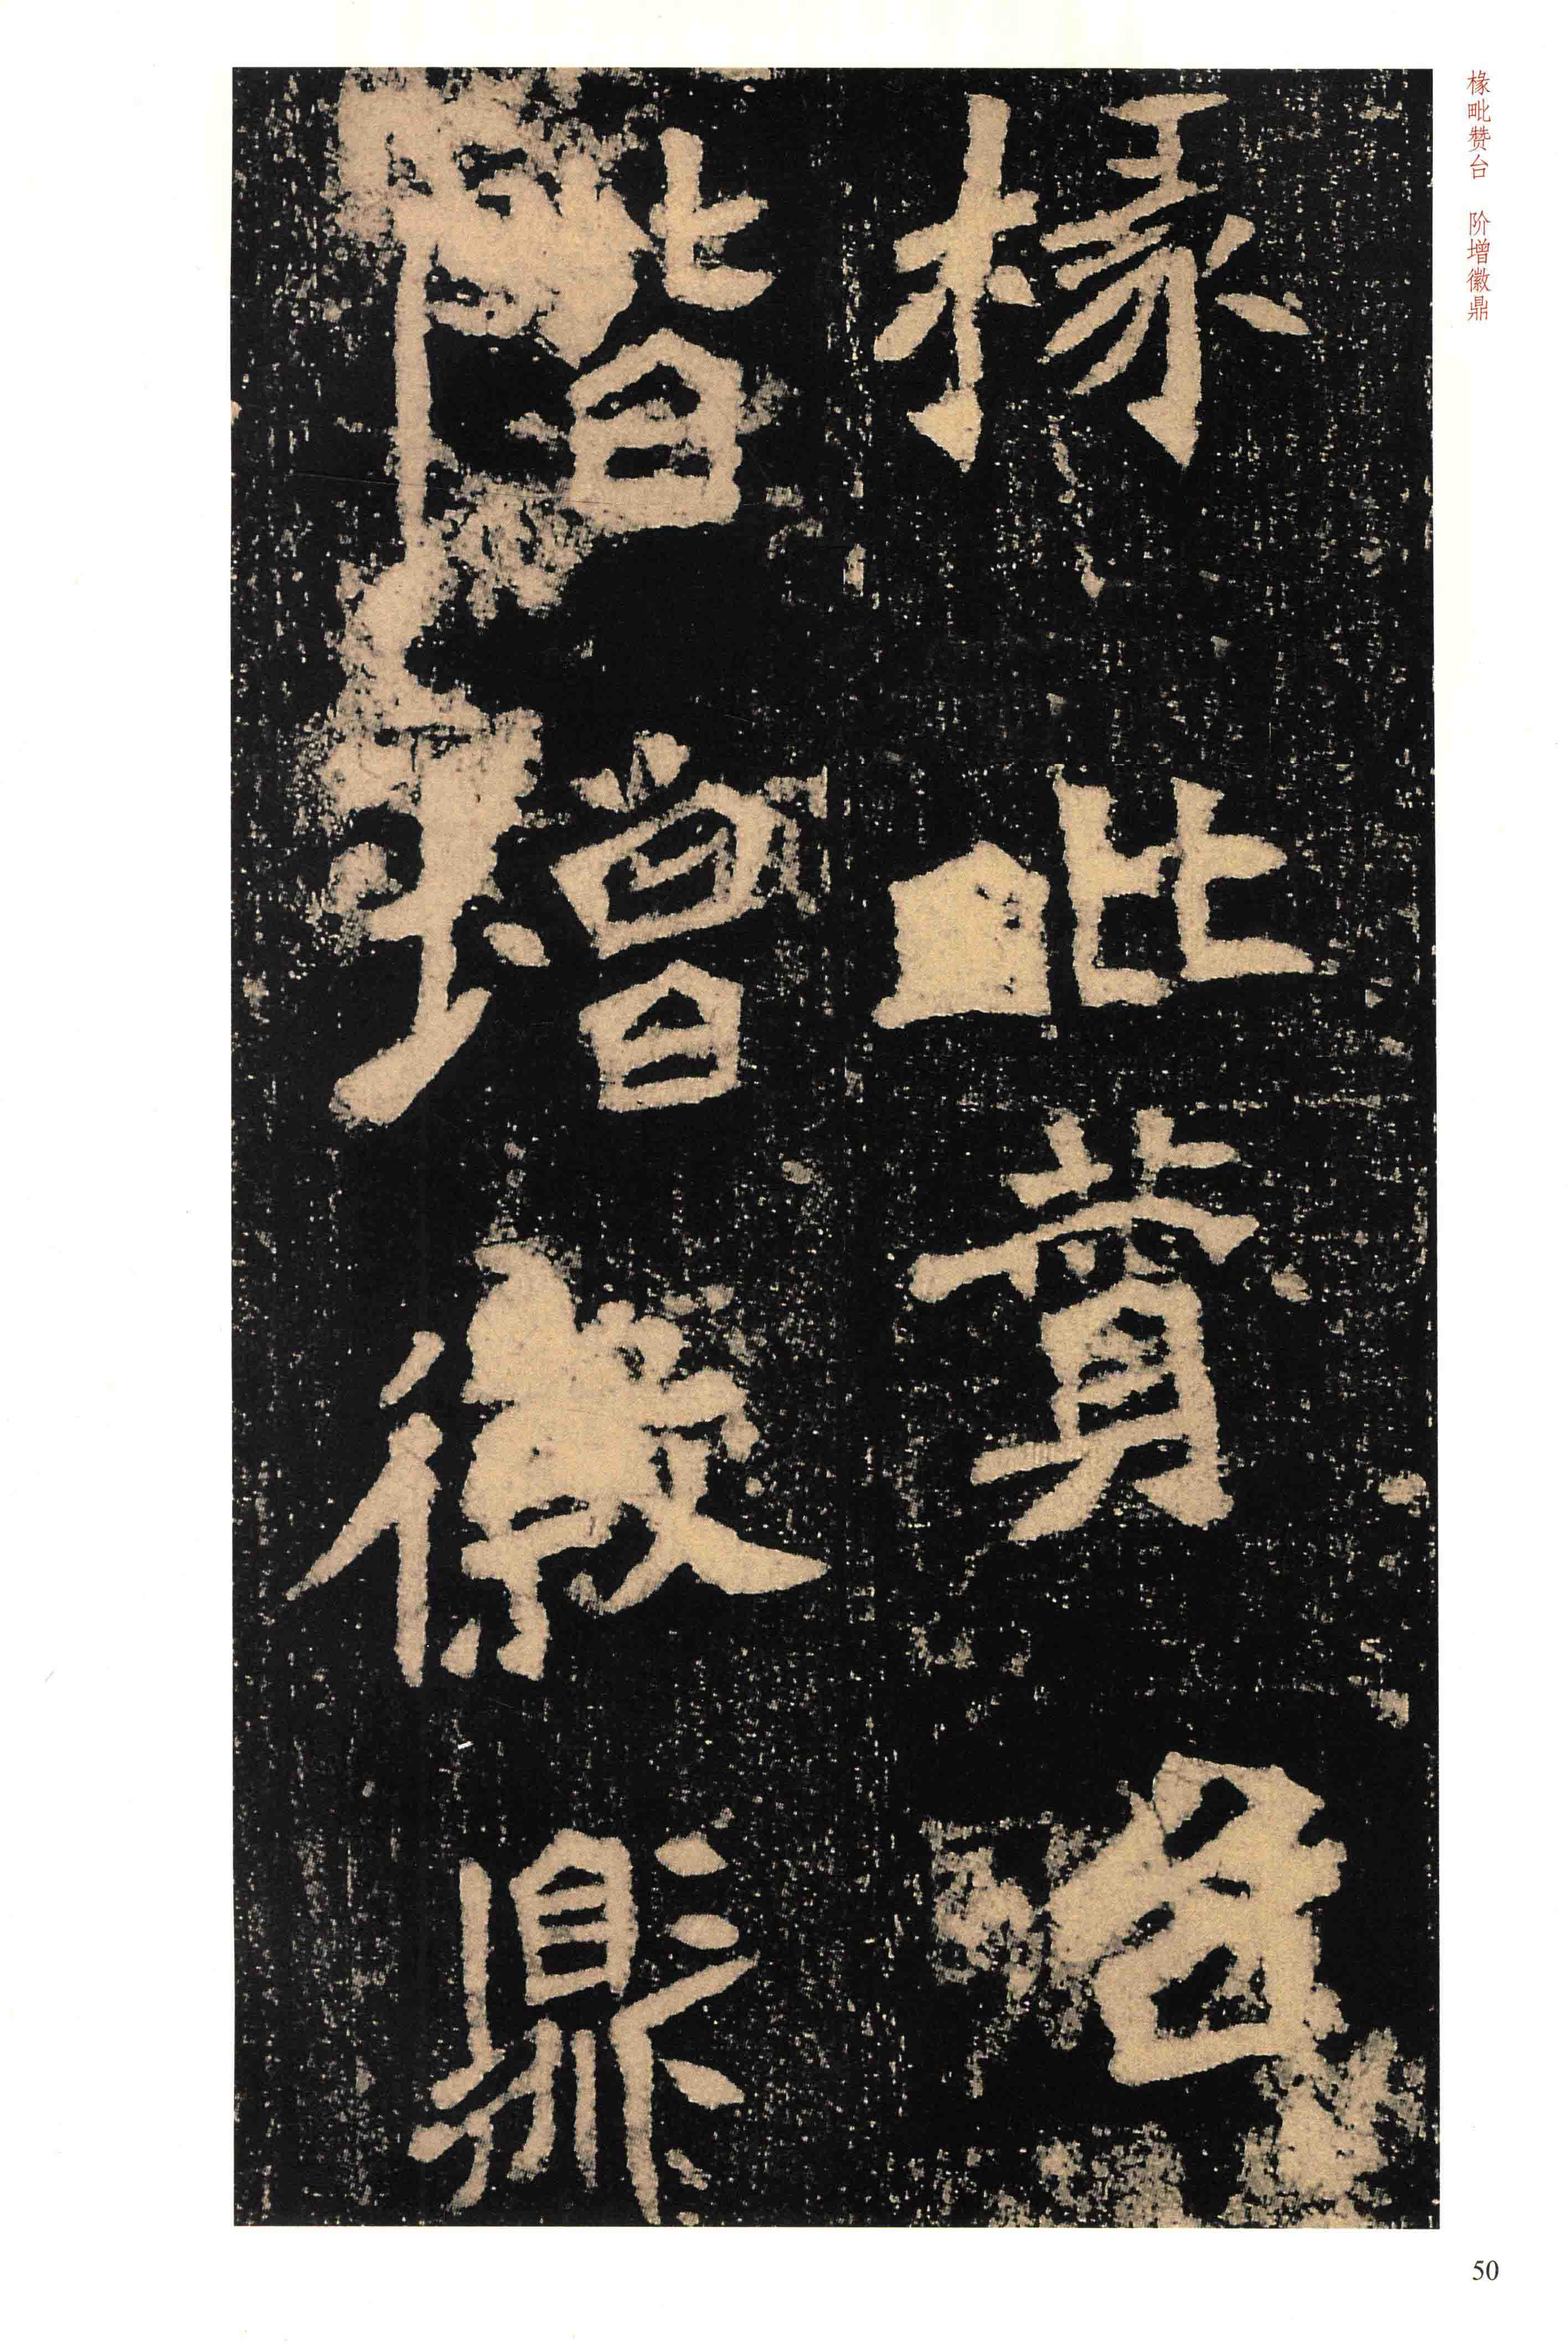 椽毗赞台　阶增徽鼎
椽毗賛台
階增徽鼎
50